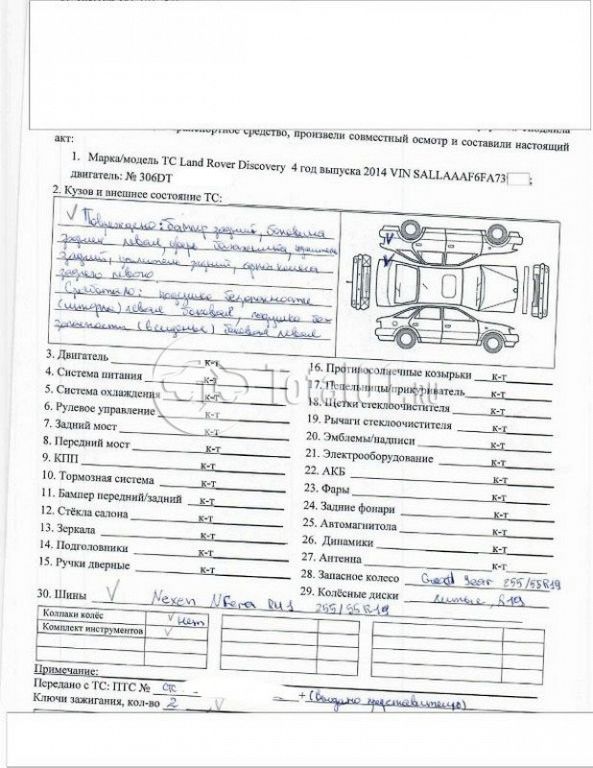 транспортное средство, произвели совместный осмотр и составили настоящий
акт:
1. Марка/модель ТС Land Rover Discovery 4 год выпуска 2014 VIN SALLAAAF6FA73
двигатель: № 306DT
2. Кузов и внешнее состояние ТС:
Повреждено: бампер задний, боковина
задняя левая,
задний, задний,
заднего левого.
Сработало: подушка безопасности
(шторка) левая боковая, подушка без
опасности (в сиденье) боковая левая
3. Двигатель к-т
4. Система питания к-т
5. Система охлаждения к-т
6. Рулевое управление к-т
7. Задний мост к-т
8. Передний мост к-т
9. КПП к-т
10. Тормозная система к-т
11. Бампер передний/задний к-т
12. Стёкла салона к-т
13. Зеркала к-т
14. Подголовники к-т
15. Ручки дверные к-т
16. Противосолнечные козырьки к-т
17. Пепельницы/прикуриватель к-т
18. Щетки стеклоочистителя к-т
19. Рычаги стеклоочистителя к-т
20. Эмблемы/надписи к-т
21. Электрооборудование к-т
22. АКБ к-т
23. Фары к-т
24. Задние фонари к-т
25. Автомагнитола к-т
26. Динамики к-т
27. Антенна к-т
28. Запасное колесо Good Year 255/55R19
29. Колёсные диски литые, R19
30. Шины Nexen 255/55R19
Колпаки колёс нет
Комплект инструментов
Примечание:
Передано с ТС: ПТС № СТС -
Ключи зажигания, кол-во 2 + (выдано представителю)